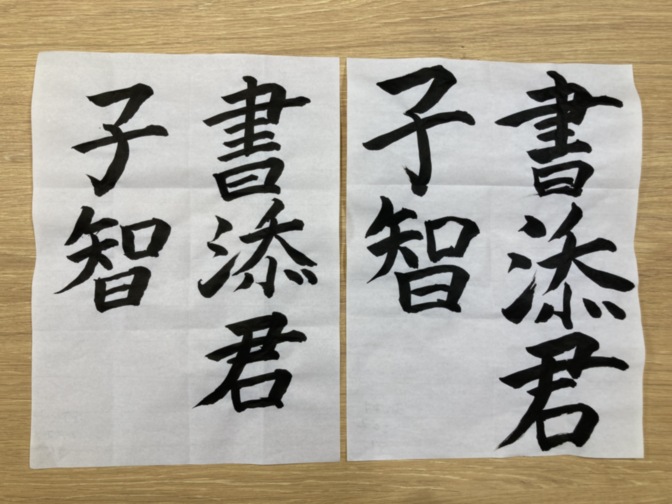 書添君
子智
書添君
子智